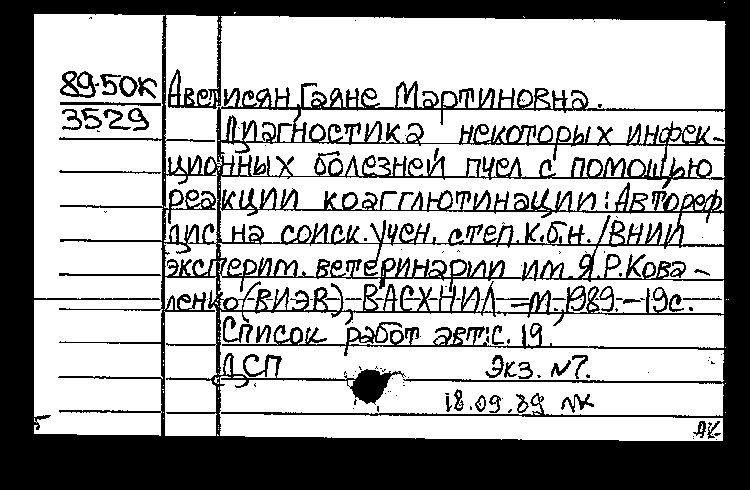 89-50К Аветисян, Гаяне Мартиновна.
3529 Диагностика некоторых инфек-
ционных болезней пчел с помощью
реакции коагглютинации: Автореф
дис на соиск. учен. степ. к.б.н. / ВНИИ
эксперим. ветеринарии им. Я.Р. Кова-
ленко (ВИЭВ), ВАСХНИЛ - М., 1989. - 19с.
Список работ авт: с. 19.
ДСП Экз. №7.
18.09.89